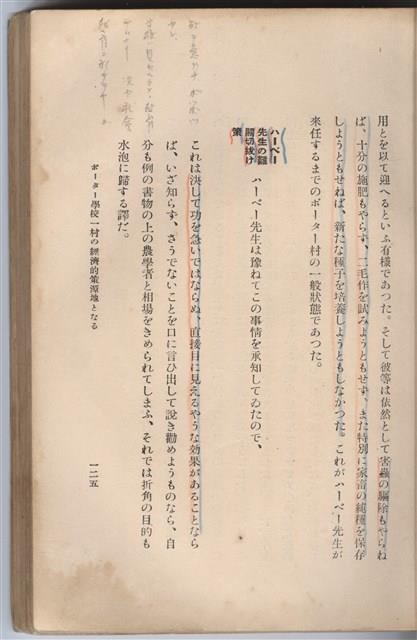 用とを以て迎へるといふ有樣であつた。そして彼等は依然として害蟲の驅除もやらね
ば、十分の施肥もやらず、二毛作を試みようともせず、また特別に家畜の純種を保存
しようともせねば、新たな種子を培養しようともしなかつた。これがハーベー先生が
來任するまでのポーター村の一般狀態であつた。
ハーベー
先生の謎
關切拔け
策
ハーベー先生は豫ねてこの事情を承知してゐたので、
これは決して功を急いではならぬ、直接目に見えるやうな効果があることなら
ば、いざ知らず、さうでないことを口に言ひ出して說き勸めようものなら、自
分も例の書物の上の農學者と相場をきめられてしまふ、それでは折角の目的も
水泡に歸する譯だ。
ポーター學校一村の經濟的策源地となる
一二五